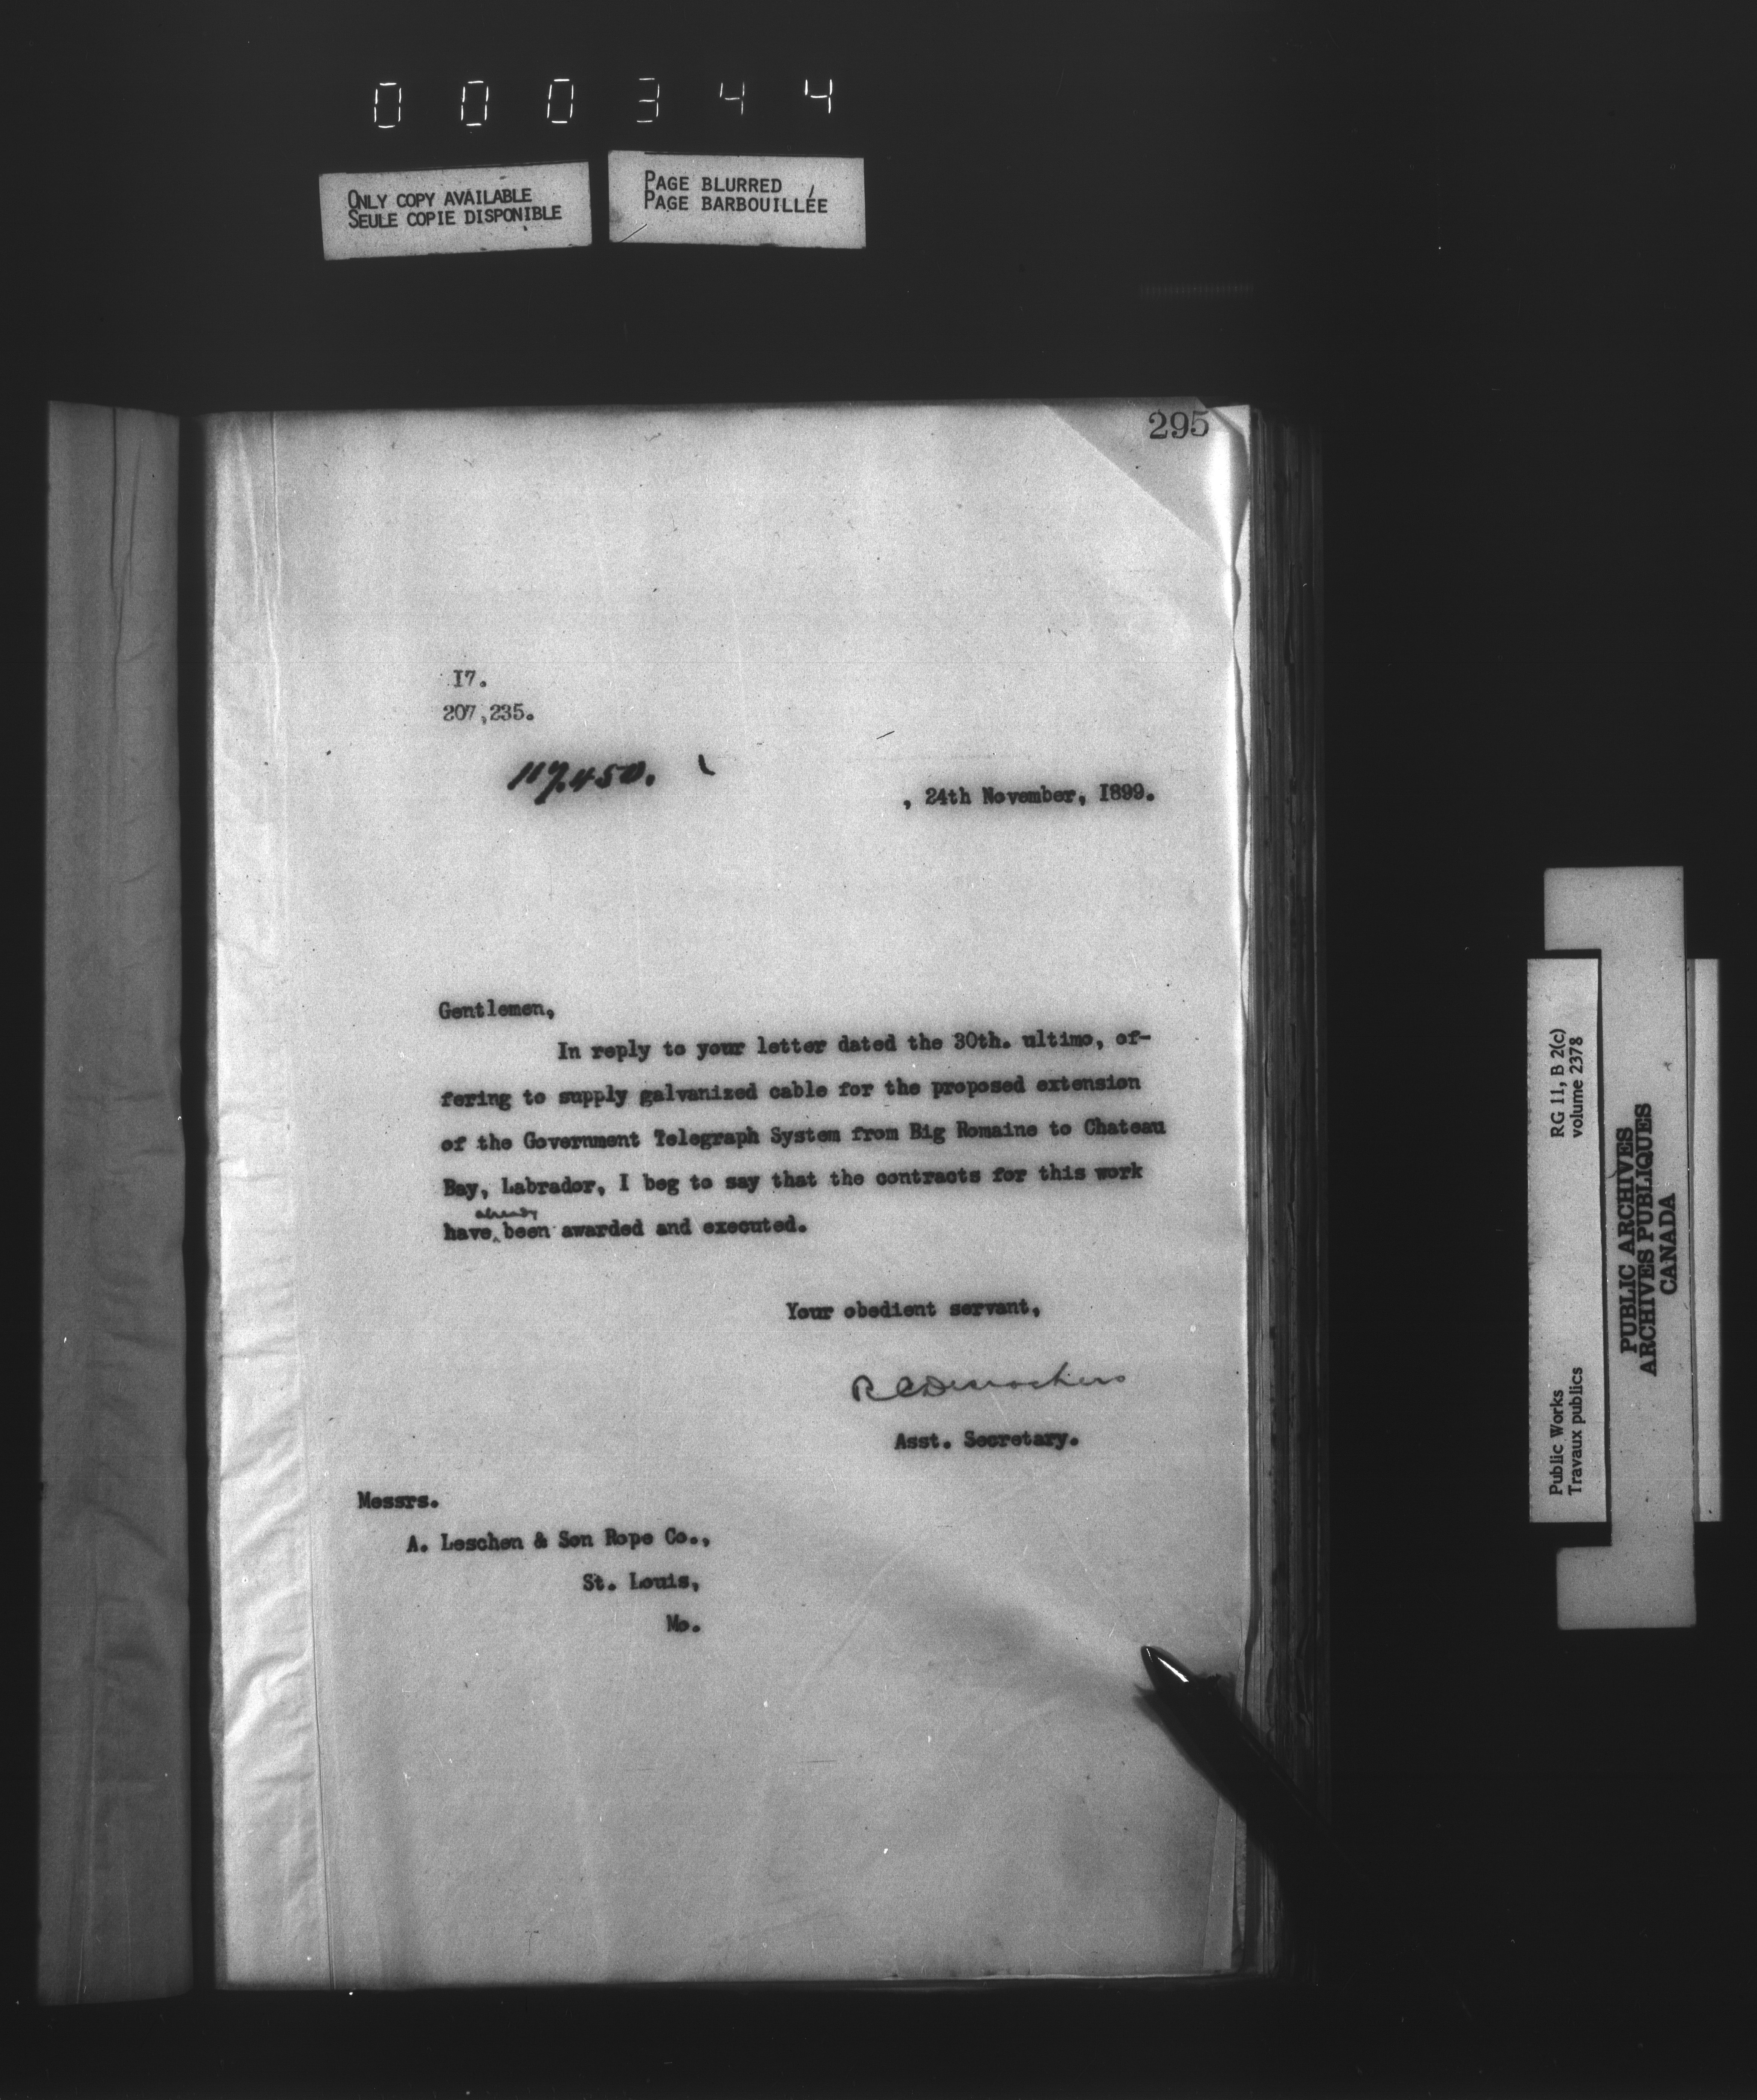 000344
ONLY COPY AVAILABLE
SEULE COPIE DISPONIBLE
PAGE BLURRED
PAGE BARBOUILLÉE
295
I7.
207,235.
117,450.
, 24th November, I899.
Gentlemen,
In reply to your letter dated the 30th. ultimo, of-
fering to supply galvanized cable for the proposed extension
of the Government Telegraph System from Big Romaine to Chateau
Bay, Labrador, I beg to say that the contracts for this work
already
have been awarded and executed.
Your obedient servant,
R C Desrochers
Asst. Secretary.
Messrs.
A. Leschen & Son Rope Co.,
St. Louis,
Mo.
RG 11, B 2(c)
volume 2378
Public Works
Travaux publics
PUBLIC ARCHIVES
ARCHIVES PUBLIQUES
CANADA